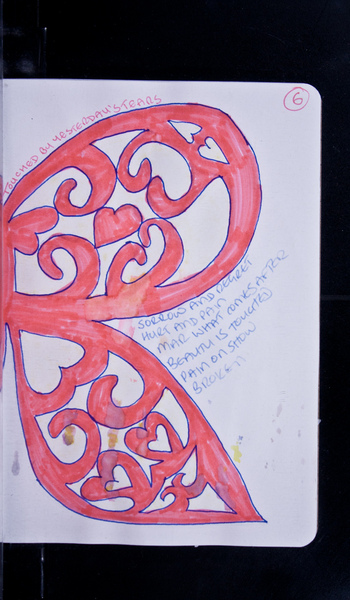 6
TOUCHED BY YESTERDAY'S TEARS
SORROW AND REGRET
HURT AND PAIN
MAR WHAT COMES AFTER
BEAUTY IS TOUCHED
PAIN ON SHOW
BROKEN